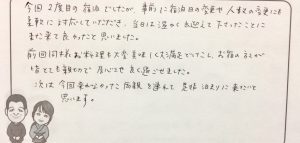 今回2度目の宿泊でしたが 事前に宿泊日の変更や人数の変更にも
柔軟に対応していただき、当日は温かくお迎えて下さったことに
また来て良かったと思いました。
前回同様お料理も大変美味しく大満足でしたし、お宿の方々が
皆とても親切で居心地よく過ごせました。
次は今回来れなかった両親を連れて是非泊まりに来たいと
思います。